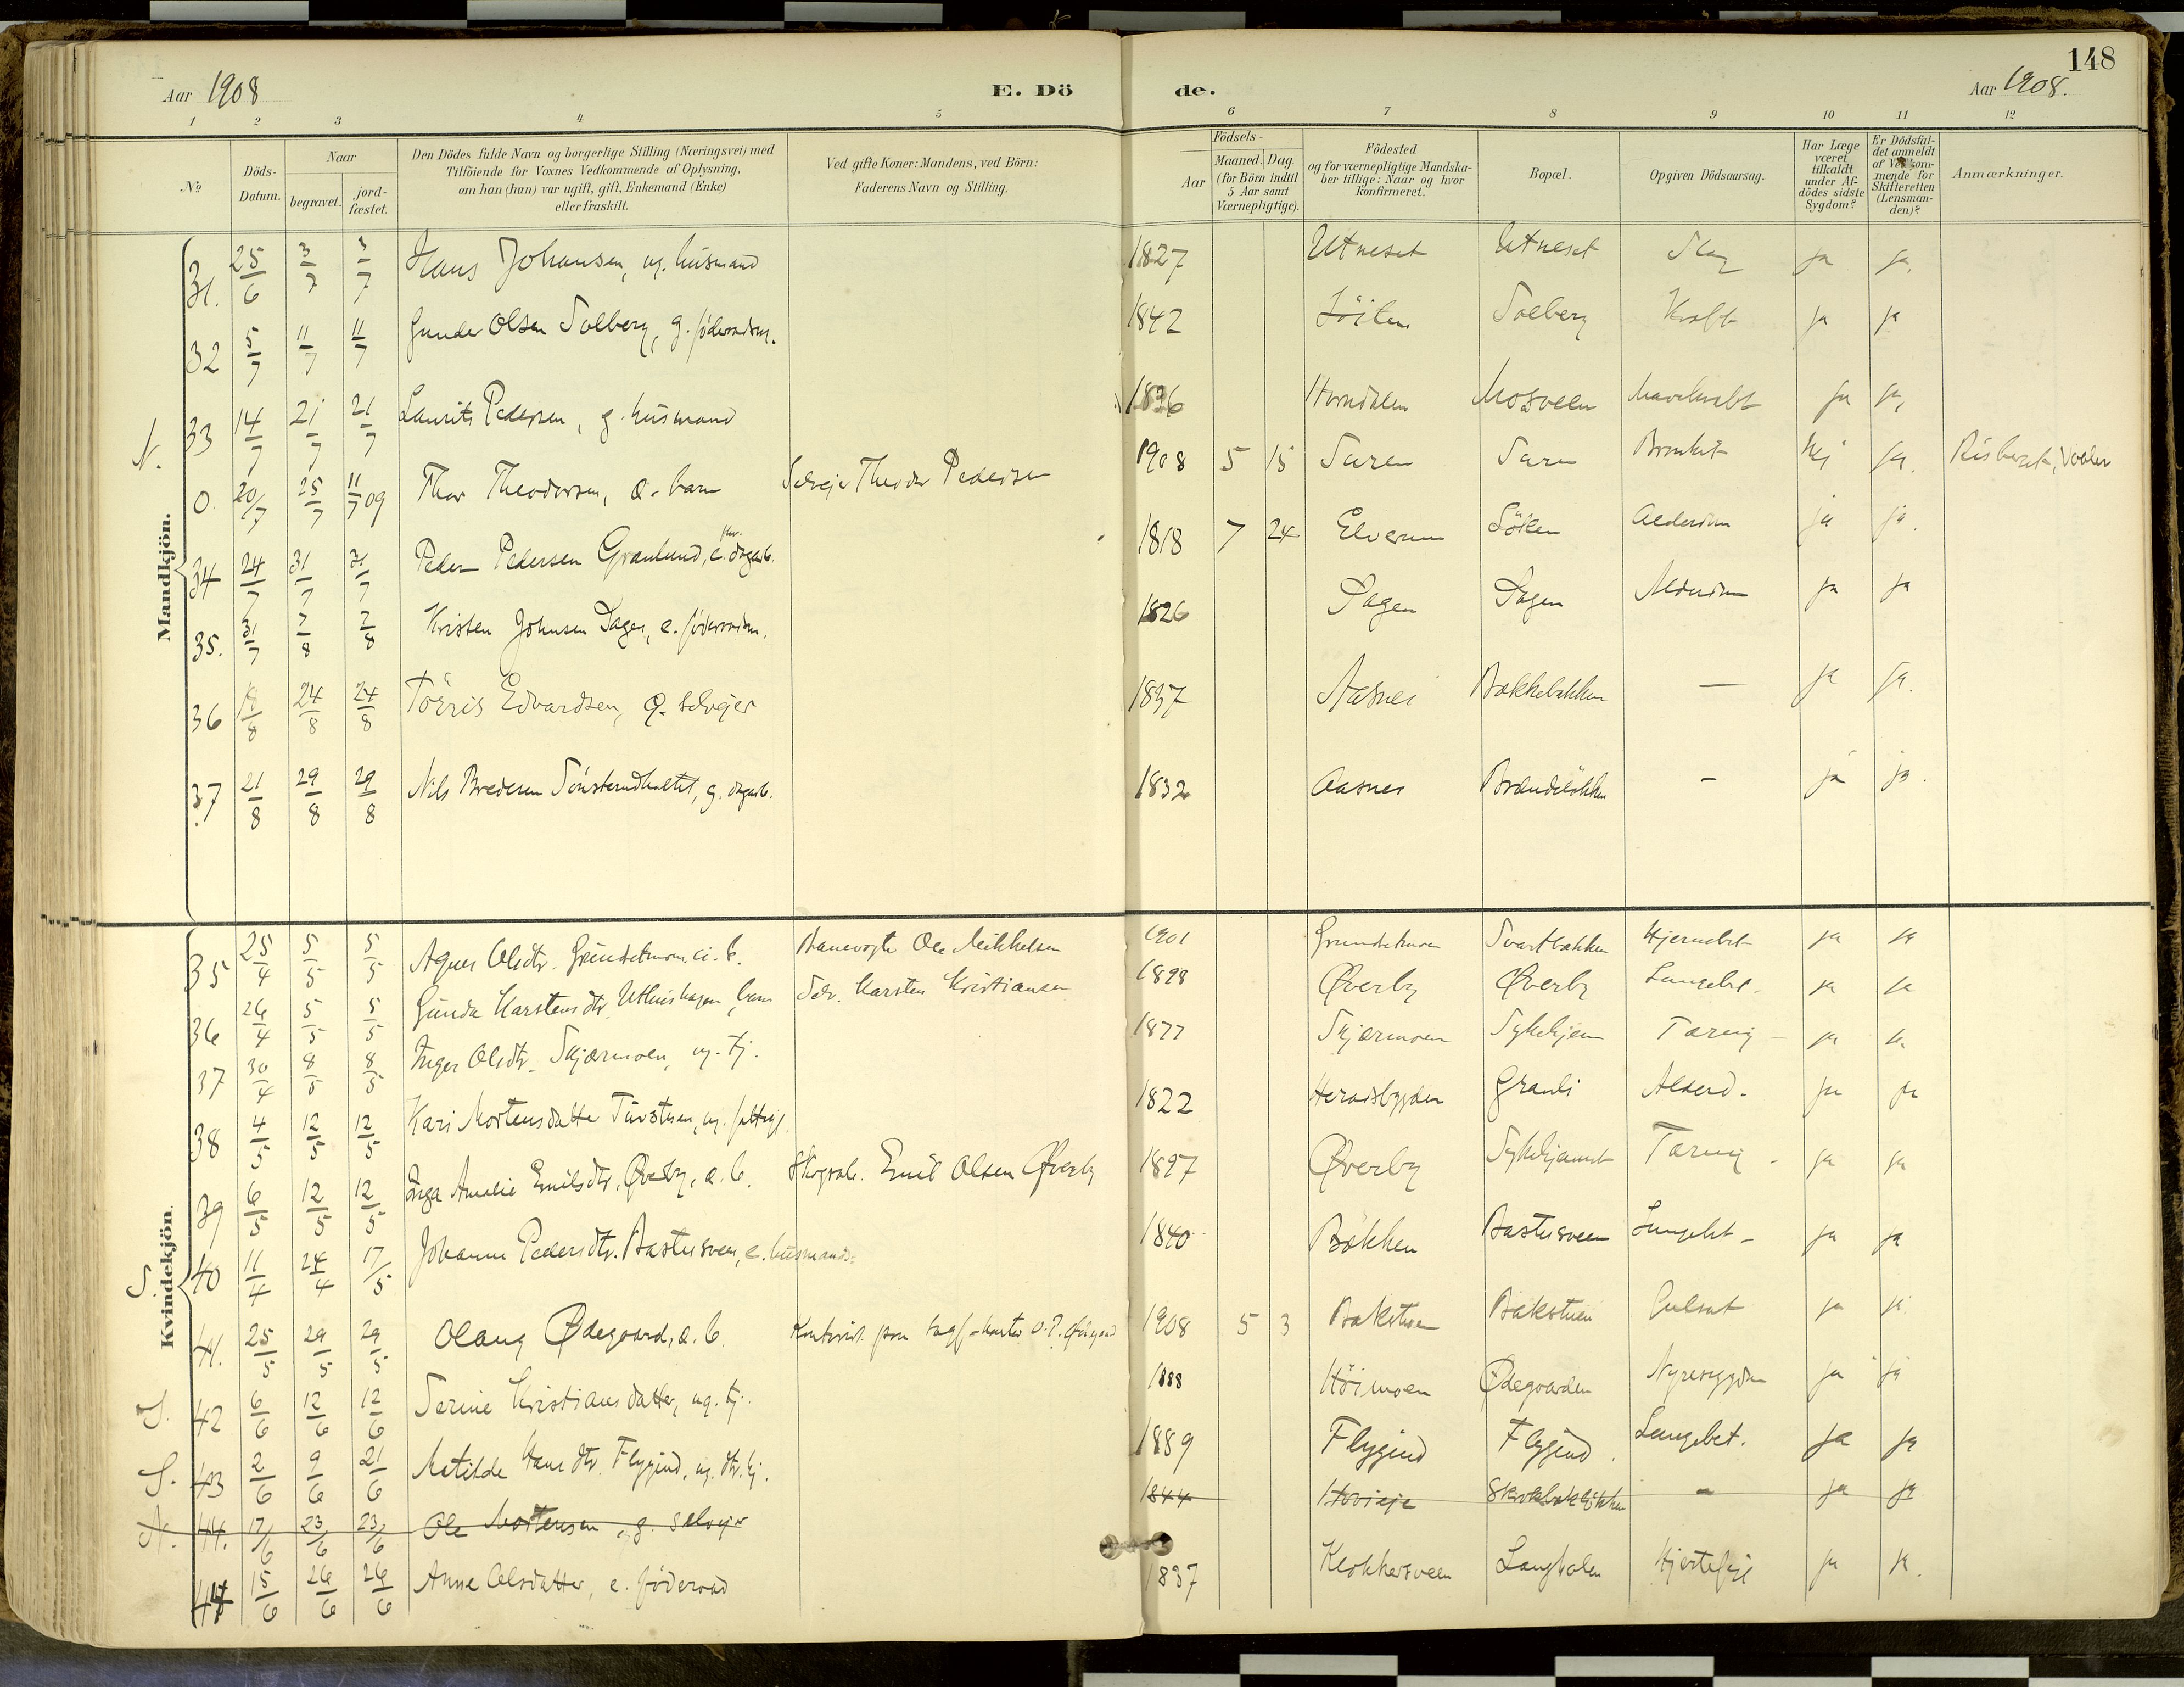 148
Aar 1908 E. Dö de. Aar 1908.
1 2 3 4 5 6 7 8 9 10 11 12
No
Döds-Datum.
Naar
begravet.
jord-fæstet.
Den Dödes fulde Navn og borgerlige Stilling (Næringsvei) med
Tilföiende for Voxnes Vedkommende af Oplysning,
om han (hun) var ugift, gift, Enkemand (Enke)
eller fraskilt.
Ved gifte Koner: Mandens, ved Börn:
Faderens Navn og Stilling.
Födsels-
Aar
Maaned. Dag.
(for Börn indtil
5 Aar samt
Værnepligtige).
Födested
og for værnepligtige Mandska-
ber tillige: Naar og hvor
Konfirmeret.
Bopæl.
Opgiven Dödsaarsag.
Har Læge
været
tilkaldt
under Af-
dödes sidste
Sygdom?
Er Dödsfal-
det anmeldt
af Vedkom-
mende for
Skifteretten
(Lensman-
den)?
Anmærkninger.
Mandkjön.
31. 25/6 3/7 3/7 Hans Johansen, ug. husmand 1827 Utneset Utneset Slag ja ja.
32 5/7 11/7 11/7 Gunder Olsen Solberg, g. föderaadsm. 1842 Löiten Solberg Kræft ja ja
N. 33 14/7 21/7 21/7 Laurits Pedersen, g. husmand 1836 Horndalen Mosveen Mavekræft ja ja,
0. 20/7 25/7 11/7 09 Thor Theodorsen, æ. barn Selvejer Theodor Pedersen 1908 5 15 Suren Suren Bronkit Nej ja. Risberget, Vaaler
34 24/7 31/7 31/7 Peder Pedersen Granlund, e. dagarb. 1818 7 24 Elverum Löken Alderdom ja ja.
35. 31/7 7/8 7/8 Kristen Johnsen Sagen, e. föderaadsm. 1826 Sagen Sagen Alderdom ja ja
36 18/8 24/8 24/8 Törris Edvardsen, g. selvejer 1837 Aasnes Bækkebakken — ja ja.
37 21/8 29/8 29/8 Nils Bredesen Sönsterudholtet, g. dagarb. 1832 Aasnes Brændelökken - ja ja.
Kvindekjön.
35 25/4 5/5 5/5 Agnes Olsdtr. Grundsetmoen, æ. b. Banevogter Ole Mikkelsen 1901 Grundsetmoen Svartbækken Hjernebet ja ja
36 26/4 5/5 5/5 Gunda Karstensdtr. Uthushagen, barn Selv. Karsten Kristiansen 1898 Øverby Øverby Lungebet. ja ja
37 30/4 8/5 8/5 Inger Olsdtr. Skjærmoen, ug. tj. 1877 Skjærmoen Sykehjem Tæring - ja ja
38 4/5 12/5 12/5 Kari Mortensdatter Turstuen, ug. fattigl. 1822 Heradsbygden Granli Alderd. ja ja
39 6/5 12/5 12/5 Inga Amalie Emilsdtr. Øverby, æ. b. Skogsarb. Emil Olsen Øverby 1897 Øverby Sykehjemmet Tæring - ja ja
S. 40 11/4 24/4 17/5 Johanne Pedersdtr. Bastusveen, e. husmands. 1840 Bækken Bastusveen Lungebet - ja ja
41. 25/5 29/5 29/5 Olaug Ødegaard, æ. b. 1908 5 3 Bakstuen Bakstuen ja ja
S. 42 6/6 12/6 12/6 Serine Kristiansdatter, ug. tj. 1888 Höimoen Ødegaarden Nyresygdom ja ja
S. 43 2/6 9/6 21/6 Matilde Hansdtr. Flygind, ug. 1889 Flygind Flygind Lungebet. ja ja
N. 44. 17/6 23/6 23/6 Ole Mortensen, g. selvejer 1844 Hovieje - ja ja
44 15/6 26/6 26/6 Anne Olsdatter, e. föderaad 1837 Klokkersveen Langholen Hjertefejl ja ja.